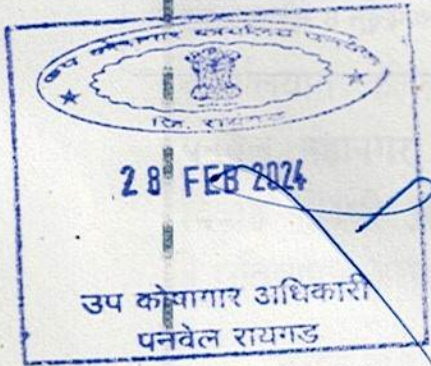 उप कोषागार कार्यालय पनवेल
जि. रायगड
28 FEB 2024
उप कोषागार अधिकारी
पनवेल रायगड